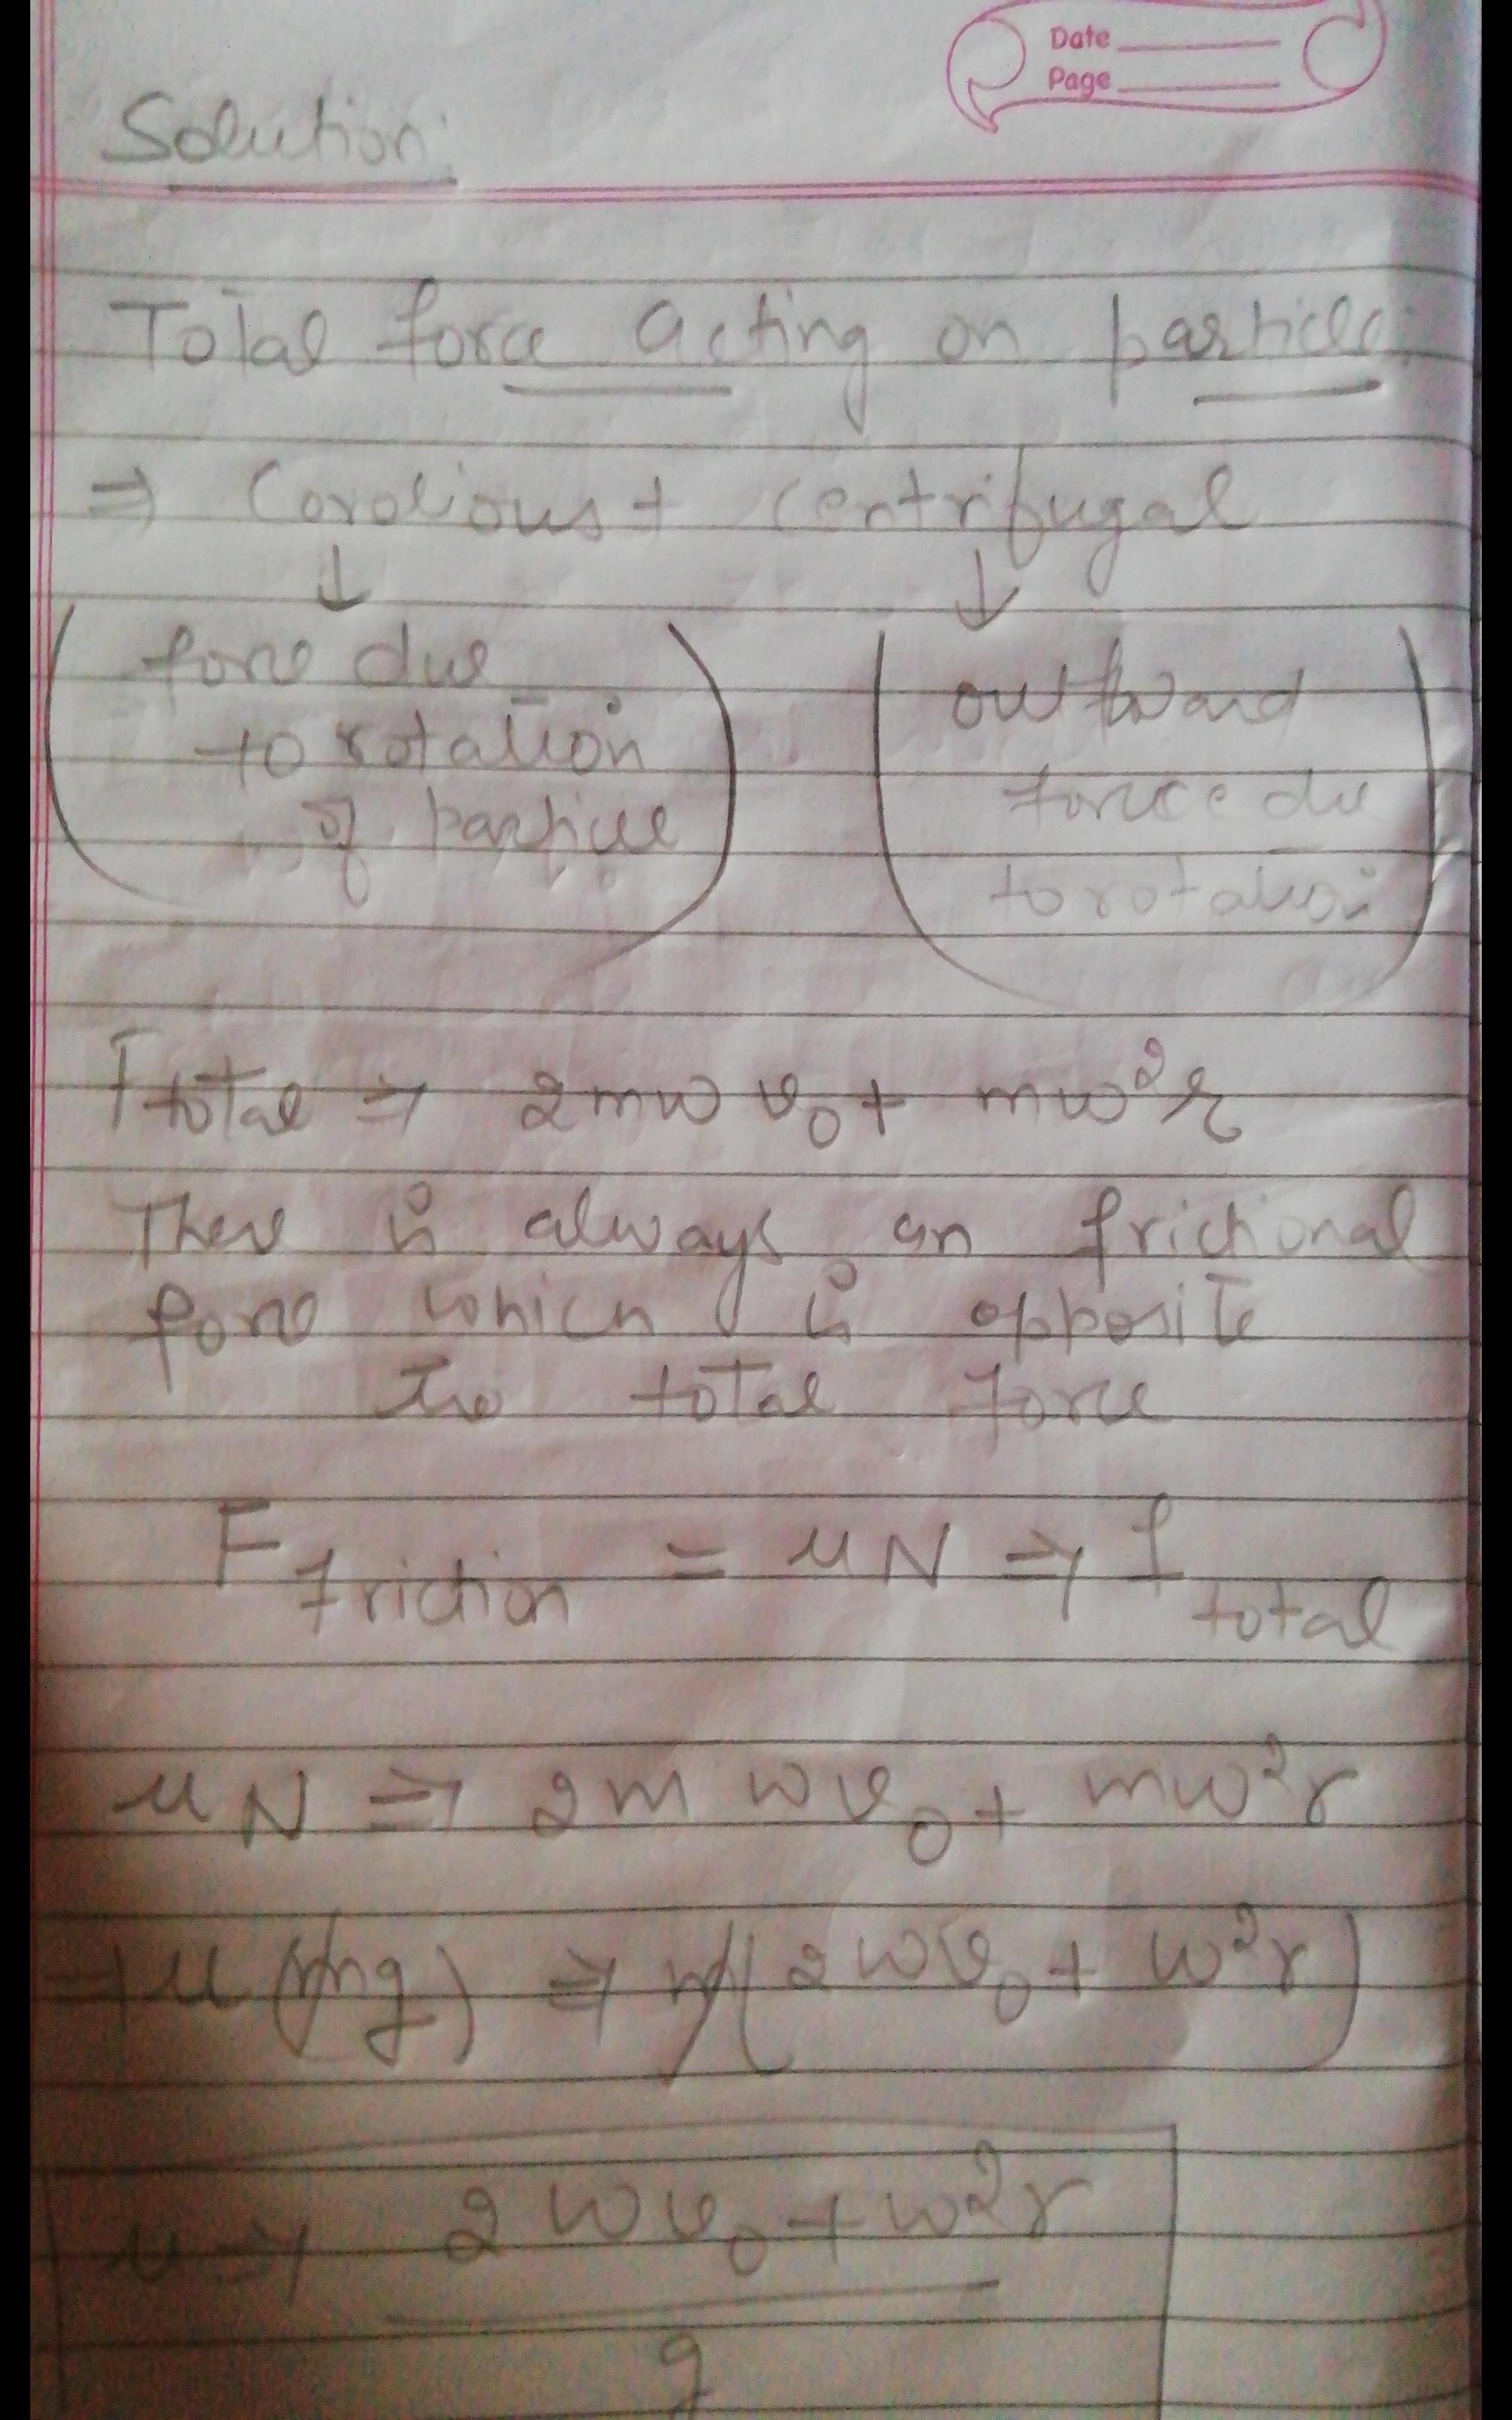 Date
Page
Solution:
Total force acting on particle:
⇒ Corolious + centrifugal
↓ ↓
(force due
to rotation
of particle)
(outward
force due
to rotation)
Ftotal ⇒ 2mw v₀ + mw²r
There is always an frictional
force which is opposite
the total force
F friction = μN ⇒ f total
μN ⇒ 2m w v₀ + mw²r
⇒ μ(mg) ⇒ m(2wv₀ + w²r)
μ ⇒ 2wv₀ + w²r
g